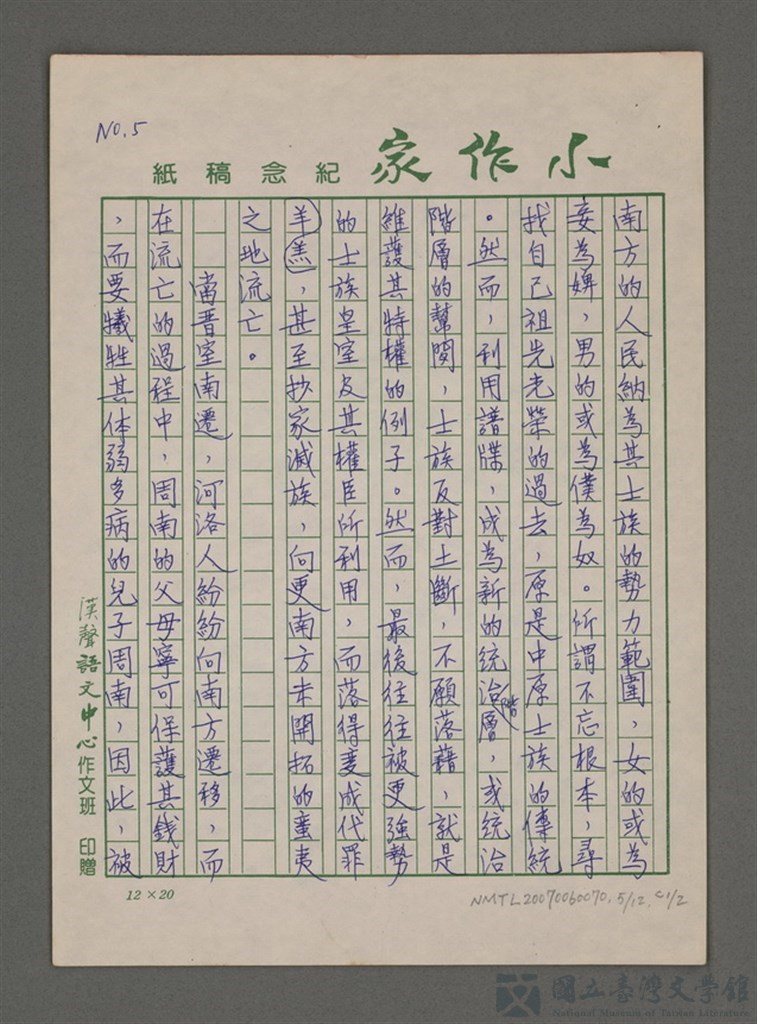 NO.5
小作家
紀念稿紙
南方的人民納為其士族的勢力範圍，女的或為
妾為婢，男的或為僕為奴。所謂不忘根本，尋
找自己祖先光榮的過去，原是中原士族的傳統
。然而，利用譜牒，成為新的統治階層，或統治
階層的幫閒，士族反對土斷，不願落藉，就是
維護其特權的例子。然而，最後往往被更強勢
的士族皇室及其權臣所利用，而落得變成代罪
羊羔，甚至抄家滅族，向更南方未開拓的蛮夷
之地流亡。
當晋室南遷，河洛人紛紛向南方遷移，而
在流亡的過程中，周南的父母寧可保護其錢財
，而要犧牲其体弱多病的兒子周南，因此，被
漢聲語文中心作文班 印贈
12×20
NMTL20070060070. 5/12. c1/2
國立臺灣文學館
National Museum of Taiwan Literature